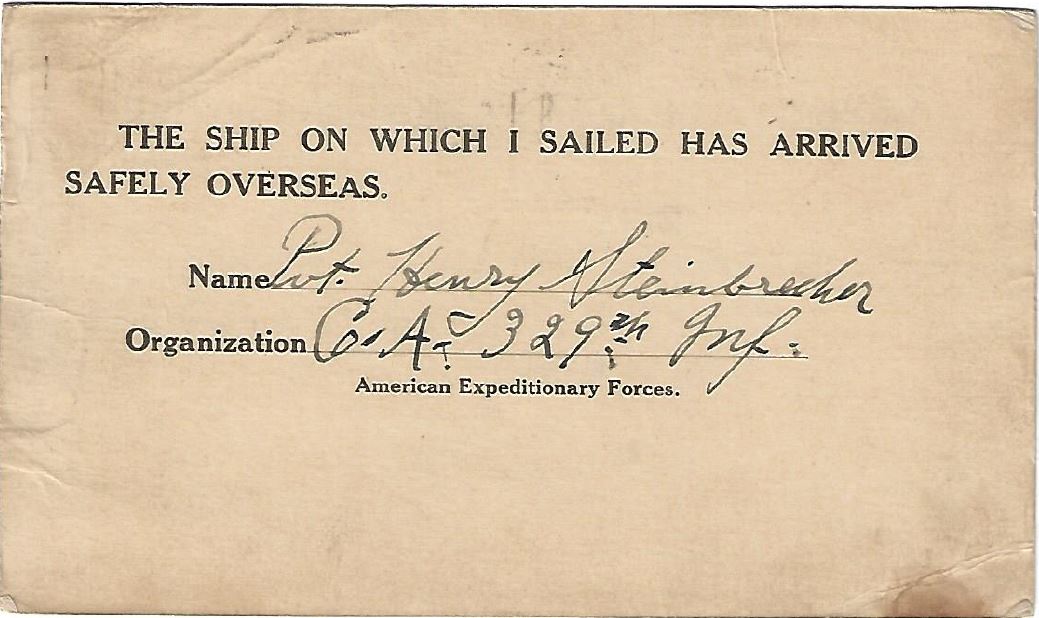 THE SHIP ON WHICH I SAILED HAS ARRIVED
SAFELY OVERSEAS.
Name Pvt. Henry Steinbrecher
Organization Co. A. 329th Inf.
American Expeditionary Forces.